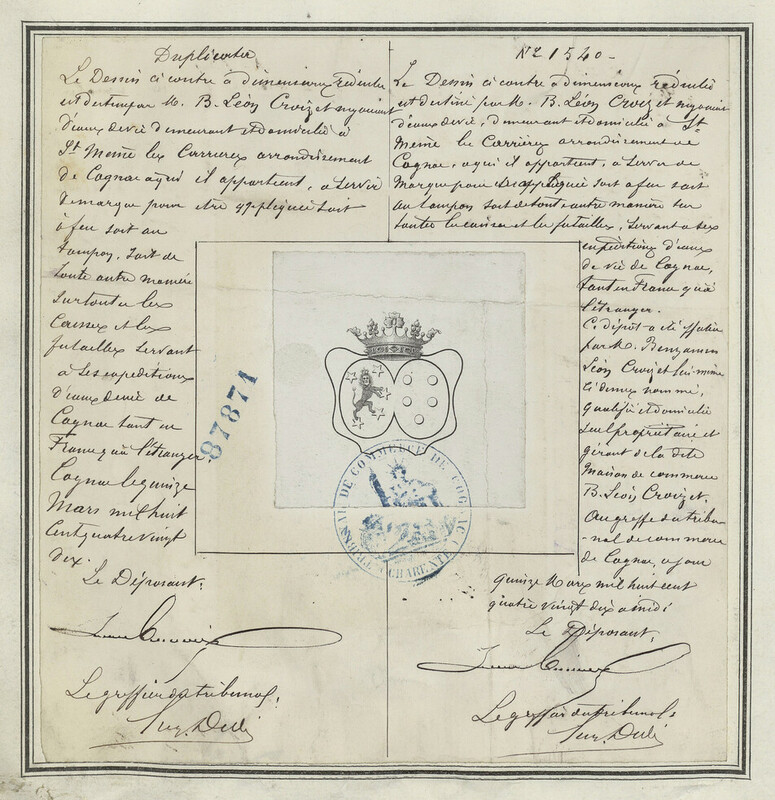 Duplicata
Le Dessin ci contre à dimensions réduites
est destiné par M. B. Léon Croizet négociant
d'eaux de vie demeurant et domicilié à
St Meme les Carrieres arrondissement
de Cognac à qui il appartient, à servir
de marque pour etre appliquée soit
à feu soit au
tampon, soit de
toute autre manière
sur toutes les
Caisses et les
futailles servant
à ses expeditions
d'eaux de vie de
Cognac tant en
France qu'à l'étranger
Cognac le quinze
Mars mil huit
Cent quatre vingt
dix.
Le Déposant,
Le greffier du tribunal,
No 1540 -
Le Dessin ci contre à dimensions réduites
est destiné par M. B. Léon Croizet négociant
d'eaux de vie, demeurant et domicilié à St
Meme les Carrières arrondissement de
Cognac, a qui il appartient, à servir de
Marque pour être appliquée soit a feu soit
au tampon soit de toute autre manière sur
toutes les caisses et les futailles, servant a ses
expéditions d'eaux
de vie de Cognac,
tant en France qu'à
l'étranger.
Ce dépôt a été effectué
par M. Benjamin
Léon Croizet lui même
ci dessus nommé,
qualifié et domicilié
seul propriétaire et
gérant de la dite
Maison de commerce
B. Léon Croizet.
Au greffe du tribu-
-nal de commerce
de Cognac, ce jour
quinze Mars mil huit cent
quatre vingt dix à midi
Le Déposant,
Le greffier du tribunal
87871
TRIBUNAL DE COMMERCE DE COGNAC
CHARENTE